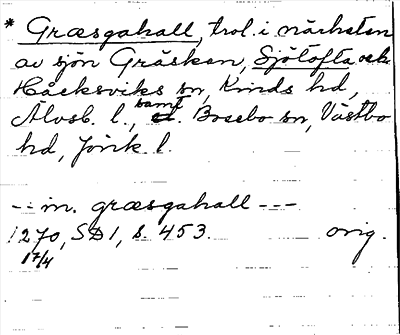 * Græsgahall, trol. i närheten
av sjön Gråsken, Sjötofta och
Håcksviks sn, Kinds hd,
Älvsb. l., samt Bosebo sn, Västbo
hd, Jönk. l.
-- in. græsgahall ---
1270, SD 1, s. 453. orig.
17/4